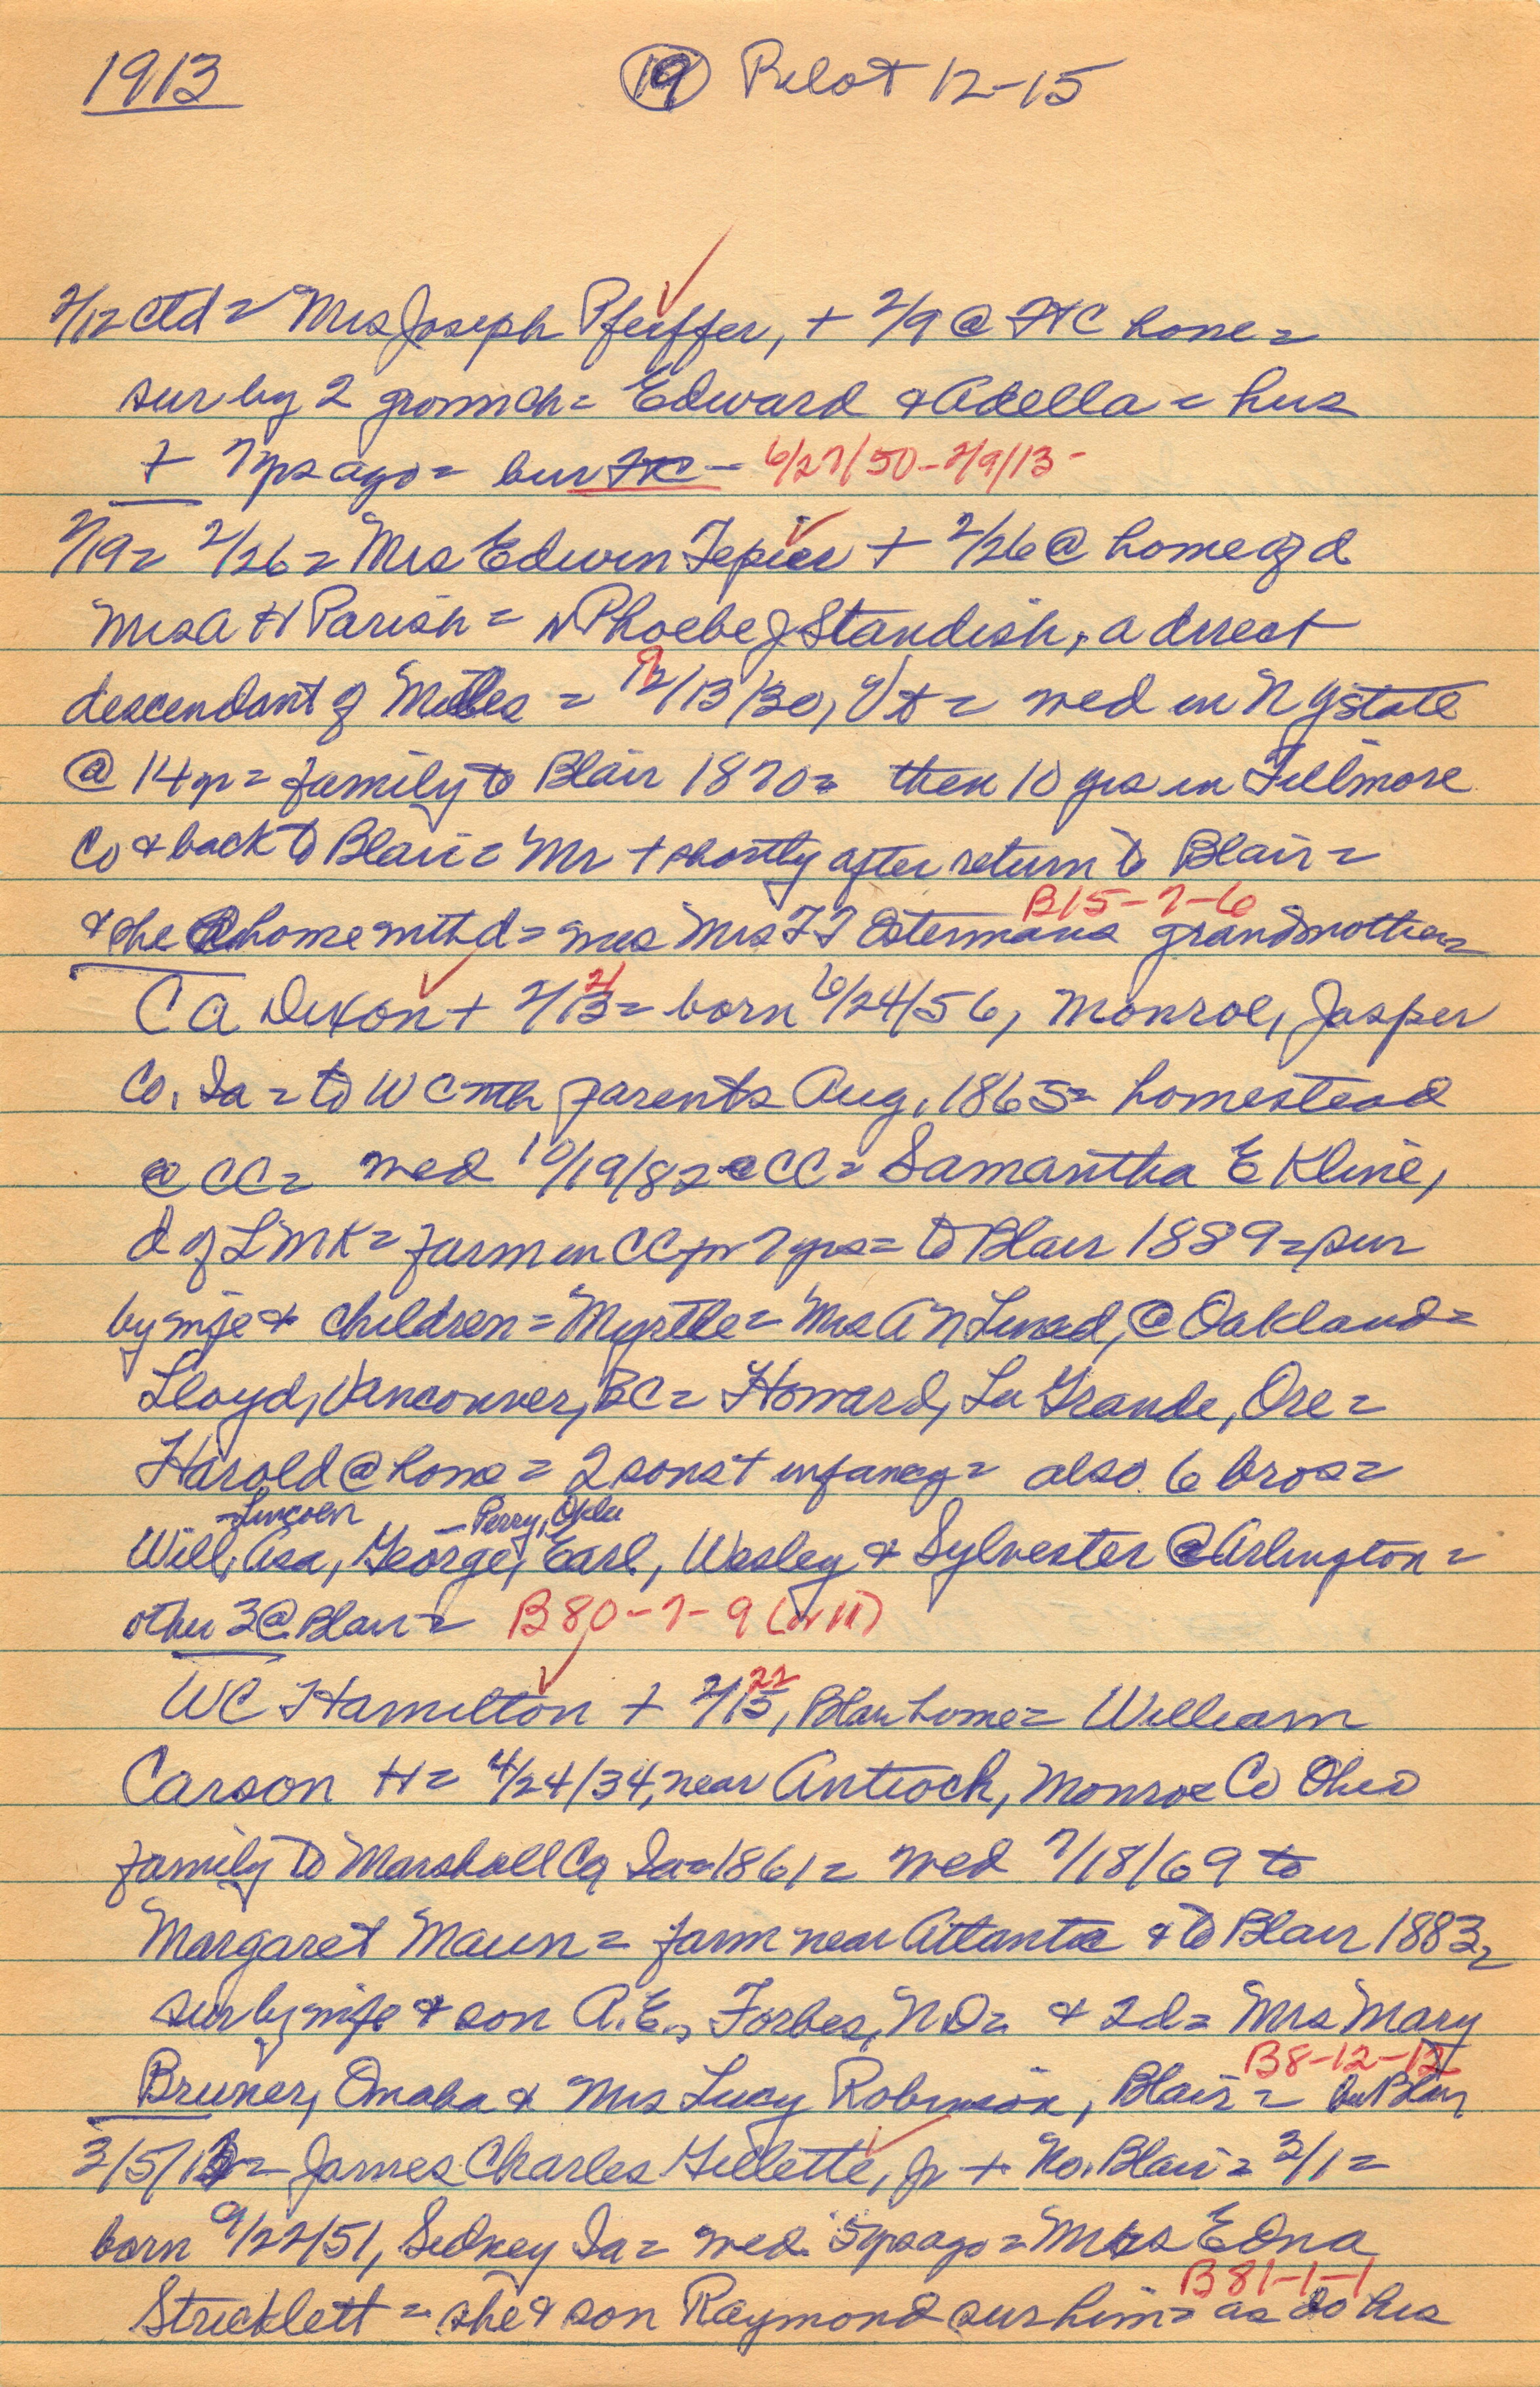 1913 (19) Pilot 12-15
2/12 ctd = Mrs Joseph Pfeiffer, + 2/9 @ FtC home =
sur by 2 grown ch = Edward & Adella = hus
+ 7 yrs ago = bur FtC - 6/27/50 - 2/9/13 -
2/19 = 2/26 = Mrs Edwin Tepier + 2/26 @ home of d
Mrs A H Parish = N Phoebe J Standish, a direct
descendant of Miles = 12/13/30, = wed in N Y state
9
@ 14 yr = family to Blair 1870 = then 10 yrs in Fillmore
Co & back to Blair = Mr + shortly after return to Blair =
B15-7-6
& she @ home with d = was Mrs F F Ostermans grandmother =
C A Dixon + 2/13 = born 6/24/56, Monroe, Jasper
21
Co. Ia = to W C with parents Aug, 1865 = homestead
@ CC = wed 10/19/82 @ CC = Samantha E Kline,
d of L M K = farm in CC for 7 yrs = to Blair 1889 = sur
by wife & children = Myrtle = Mrs A N Lund, @ Oakland =
Lloyd, Vancouver, BC = Howard, La Grande, Ore =
Harold @ home = 2 sons + infancy = also 6 bros =
-Lincoln - Perry, Okla
Will, Asa, George, Earl, Wesley & Sylvester @ Arlington =
other 3 @ Blair = B 80-7-9 (or 11)
22
WC Hamilton + 2/15, Blair home = William
Carson H = 4/24/34, near Antioch, Monroe Co Ohio
family to Marshall Co, Ia = 1861 = wed 7/18/69 to
Margaret Maun = farm near Atlanta & to Blair 1883 =
sur by wife & son A.E., Forbes, ND = & 2 d = Mrs Mary
B8-12-12
Bruner, Omaha & Mrs Lucy Robinson, Blair = bur Blair
3/5/13 = James Charles Gillette, Jr + No. Blair = 3/1 =
born 9/22/51, Sidney Ia = wed 5 yrs ago = Mrs Edna
B 81-1-1
Stricklett = she & son Raymond sur him = as do his